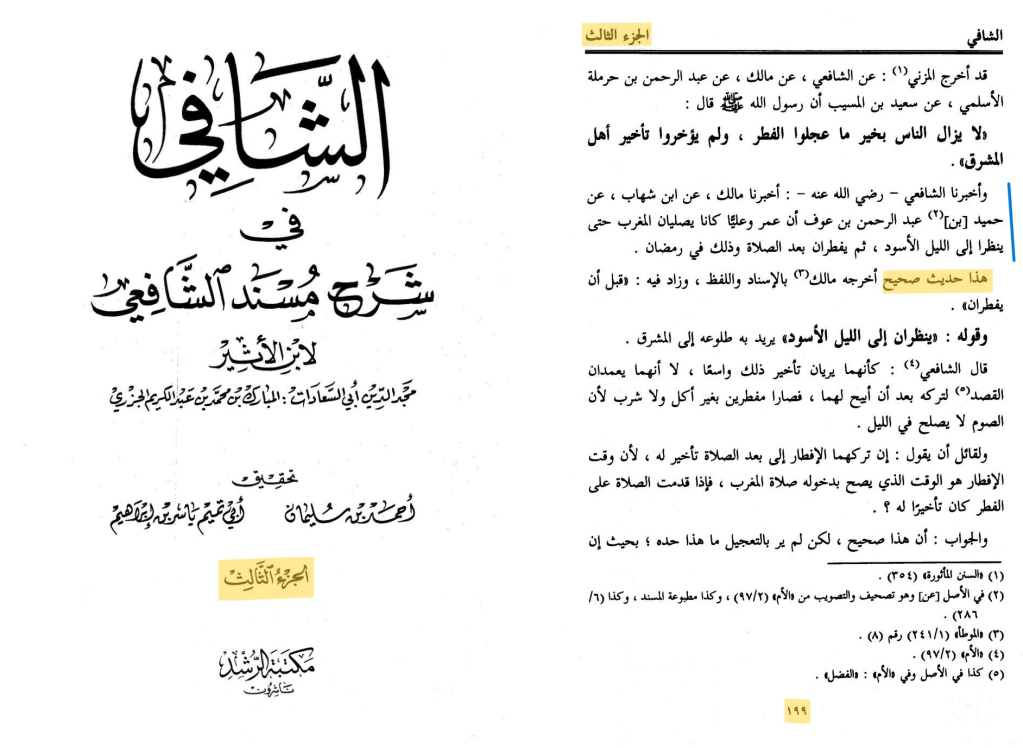 الشَّافِي
في
شَرْح مُسْنَد الشَّافِعي
لابن الأثير
مجد الدين أبي السعادات : المبارك بن محمد بن عبد الكريم الجزري
تحقيق
أحمد بن سليمان
أبي تميم ياسر بن إبراهيم
الجزءُ الثَّالِث
مكتبة الرشد
ناشرون
الشافي
الجزء الثالث
قد أخرج المزني(١) : عن الشافعي ، عن مالك ، عن عبد الرحمن بن حرملة
الأسلمي ، عن سعيد بن المسيب أن رسول الله ﷺ قال :
«لا يزال الناس بخير ما عجلوا الفطر ، ولم يؤخروا تأخير أهل
المشرق» .
وأخبرنا الشافعي - رضي الله عنه - : أخبرنا مالك ، عن ابن شهاب ، عن
حميد [بن](٢) عبد الرحمن بن عوف أن عمر وعليًّا كانا يصليان المغرب حتى
ينظرا إلى الليل الأسود ، ثم يفطران بعد الصلاة وذلك في رمضان .
هذا حديث صحيح أخرجه مالك(٣) بالإسناد واللفظ ، وزاد فيه : «قبل أن
يفطران» .
وقوله : «ينظران إلى الليل الأسود» يريد به طلوعه إلى المشرق .
قال الشافعي(٤) : كأنهما يريان تأخير ذلك واسعًا ، لا أنهما يعمدان
القصد(٥) لتركه بعد أن أبيح لهما ، فصارا مفطرين بغير أكل ولا شرب لأن
الصوم لا يصلح في الليل .
ولقائل أن يقول : إن تركهما الإفطار إلى بعد الصلاة تأخير له ، لأن وقت
الإفطار هو الوقت الذي يصح بدخوله صلاة المغرب ، فإذا قدمت الصلاة على
الفطر كان تأخيرًا له ؟ .
والجواب : أن هذا صحيح ، لكن لم ير بالتعجيل ما هذا حده ؛ بحيث إن
(١) «السنن المأثورة» (٣٥٤) .
(٢) في الأصل [عن] وهو تصحيف والتصويب من «الأم» (٩٧/٢) ، وكذا مطبوعة المسند ، وكذا (٦/
٢٨٦) .
(٣) «الموطأ» (٢٤١/١) رقم (٨) .
(٤) «الأم» (٩٧/٢) .
(٥) كذا في الأصل وفي «الأم» : «الفضل» .
١٩٩